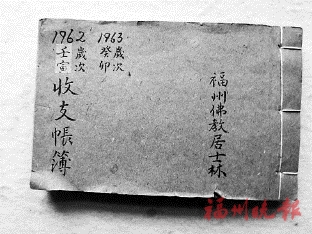 福州佛教居士林
1963
歲次
癸卯
1962
歲次
壬寅
收支帳簿
福州晚報